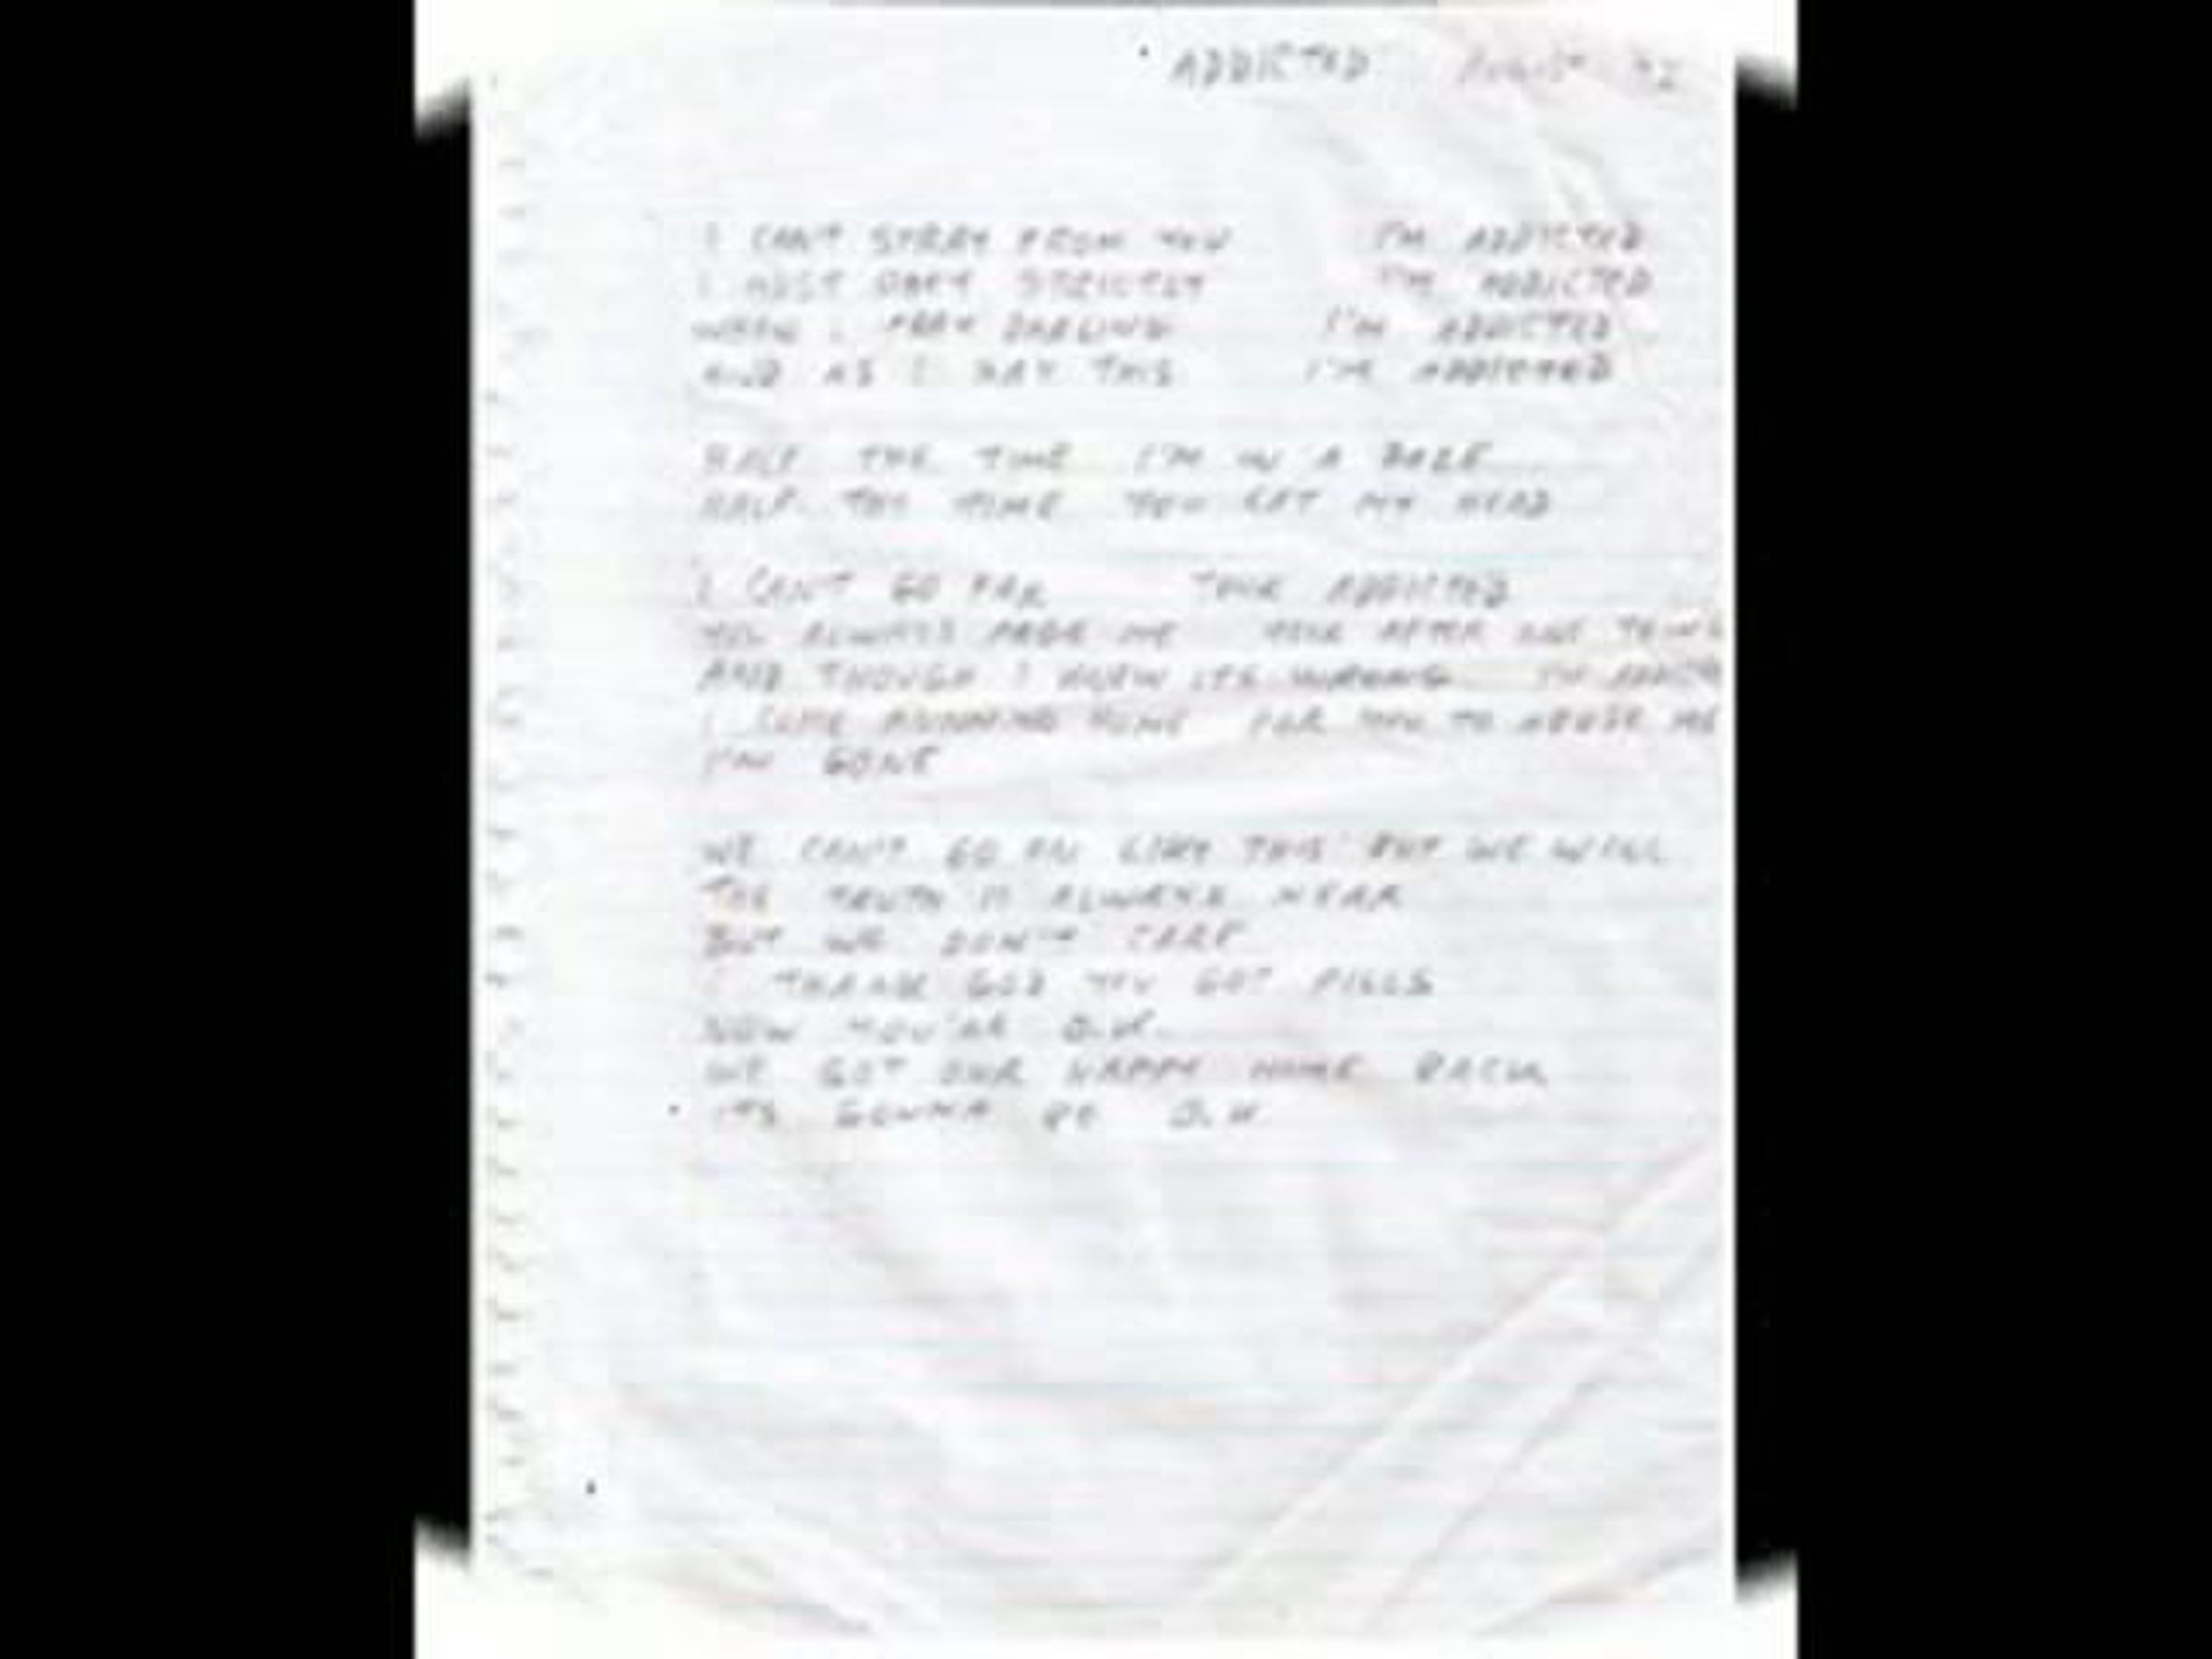 ADDICTED AUGUST 92
I CAN'T STRAY FROM YOU I'M ADDICTED
I MUST OBEY STRICTLY I'M ADDICTED
WHEN I PRAY DARLING I'M ADDICTED
AND AS I SAY THIS I'M ADDICTED
HALF THE TIME I'M IN A DAZE
HALF THE TIME YOU GET MY HEAD
I CAN'T GO FAR YOUR ADDICTED
YOU ALWAYS PAGE ME YOUR AFTER ONE THING
AND THOUGH I KNOW ITS WRONG I'M ADDICT
I COME RUNNING HOME FOR YOU TO ABUSE ME
I'M GONE
WE CAN'T GO ON LIKE THIS BUT WE WILL
THE TRUTH IS ALWAYS NEAR
BUT WE DON'T CARE
I THANK GOD YOU GOT PILLS
NOW YOU'RE O.K.
WE GOT OUR HAPPY HOME BACK
ITS GONNA BE O.K